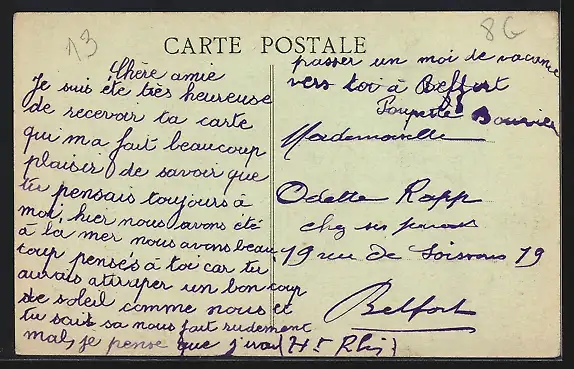 13
8G
CARTE POSTALE
Chère amie
Je suis été très heureuse
de recevoir ta carte
qui m'a fait beaucoup
plaisir de savoir que
tu pensais toujours à
moi, hier nous avons été
à la mer nous avons beau
coup pensés à toi car tu
aurais attraper un bon coup
de soleil comme nous et
tu sait sa nous fait rudement
mal, je pense que j'irai
passer un moi de vacance
vers toi à Belfort
Bourvile
Mademoiselle
Odette Rapp
chez ses parents
19 rue de Soissons 19
Belfort
(Ht Rhin)